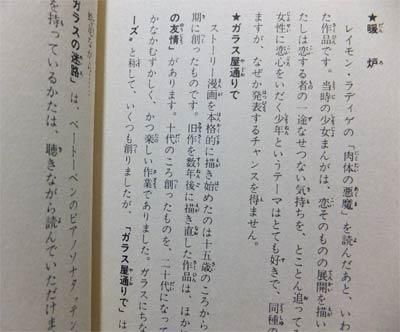 ★暖炉
レイモン・ラディゲの「肉体の悪魔」を読んだあと、い
た作品です。当時の少女まんがは、恋そのものの展開を描い
たしは恋する者の一途なせつない気持ちを、とことん追って
女性に恋心をいだく少年というテーマはとても好きで、同種の
ますが、なぜか発表するチャンスを得ません。
★ガラス屋通りで
ストーリー漫画を本格的に描き始めたのは十五歳のころから
期に創ったものです。旧作を数年後に描き直した作品は、ほか
の友情」があります。十代のころ創ったものを、二十代になって
かなかむずかしく、かつ楽しい作業でありました。ガラスにちな
ーズ〟と称して、いくつも創りましたが、「ガラス屋通りで」は
ガラスの迷路」は、ベートーベンのピアノソナタ〝テン
を持っているかたは、聴きながら読んでいただけま